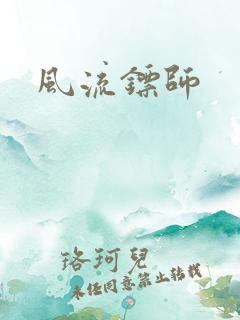 風流鏢師
珞珂兒
未经同意禁止转载